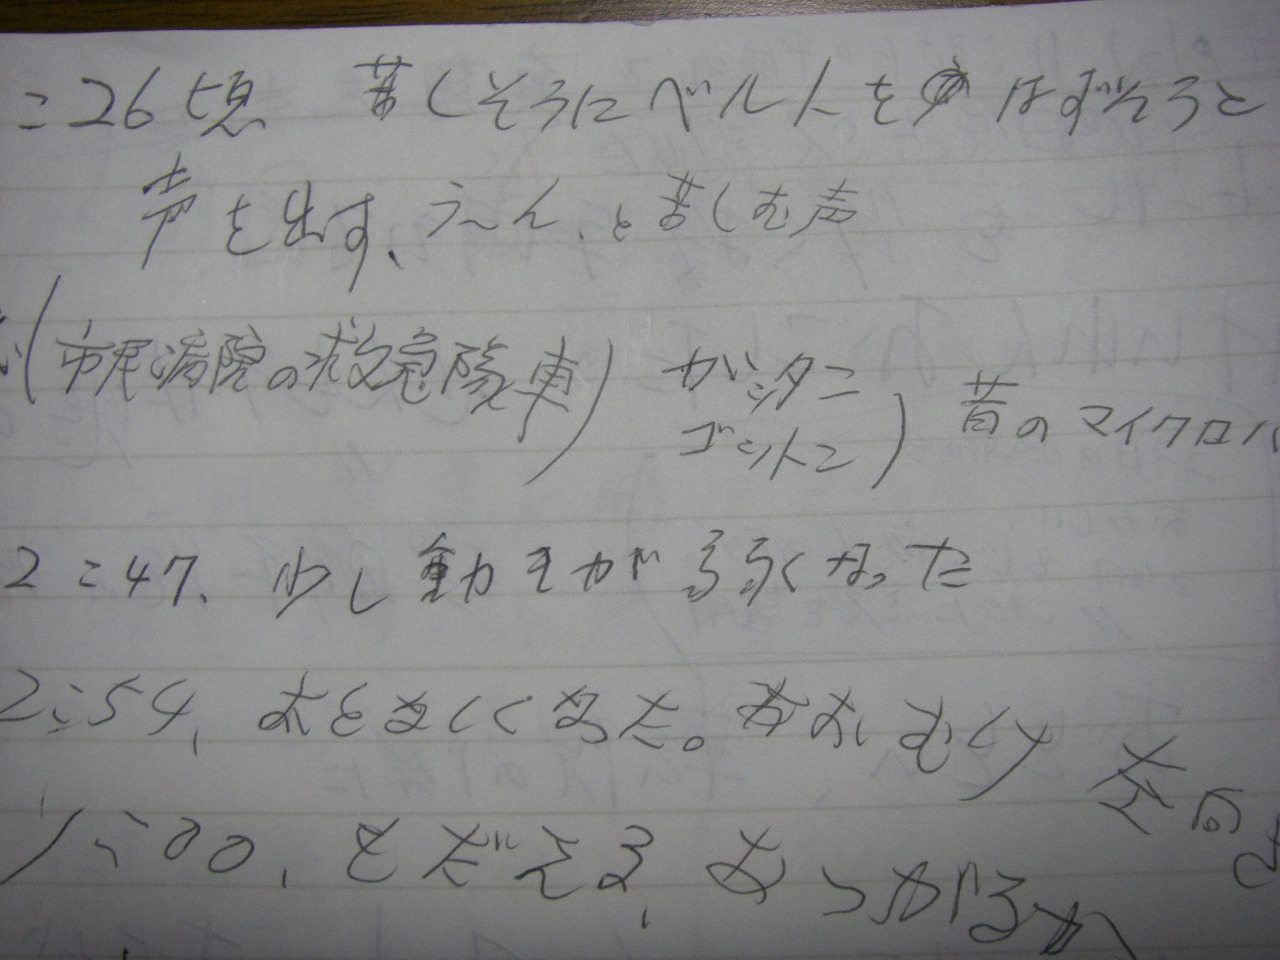 :26頃 苦しそうにベルトを はずそうと
声を出す、う~ん、と苦しむ声
(市尾病院の救急隊車) ガシタン 昔のマイクロバ
ゴットン)
2:47、少し動きが弱くなった
2:54、おとなしくなった。あおむけ 左向
:00、とだえる、